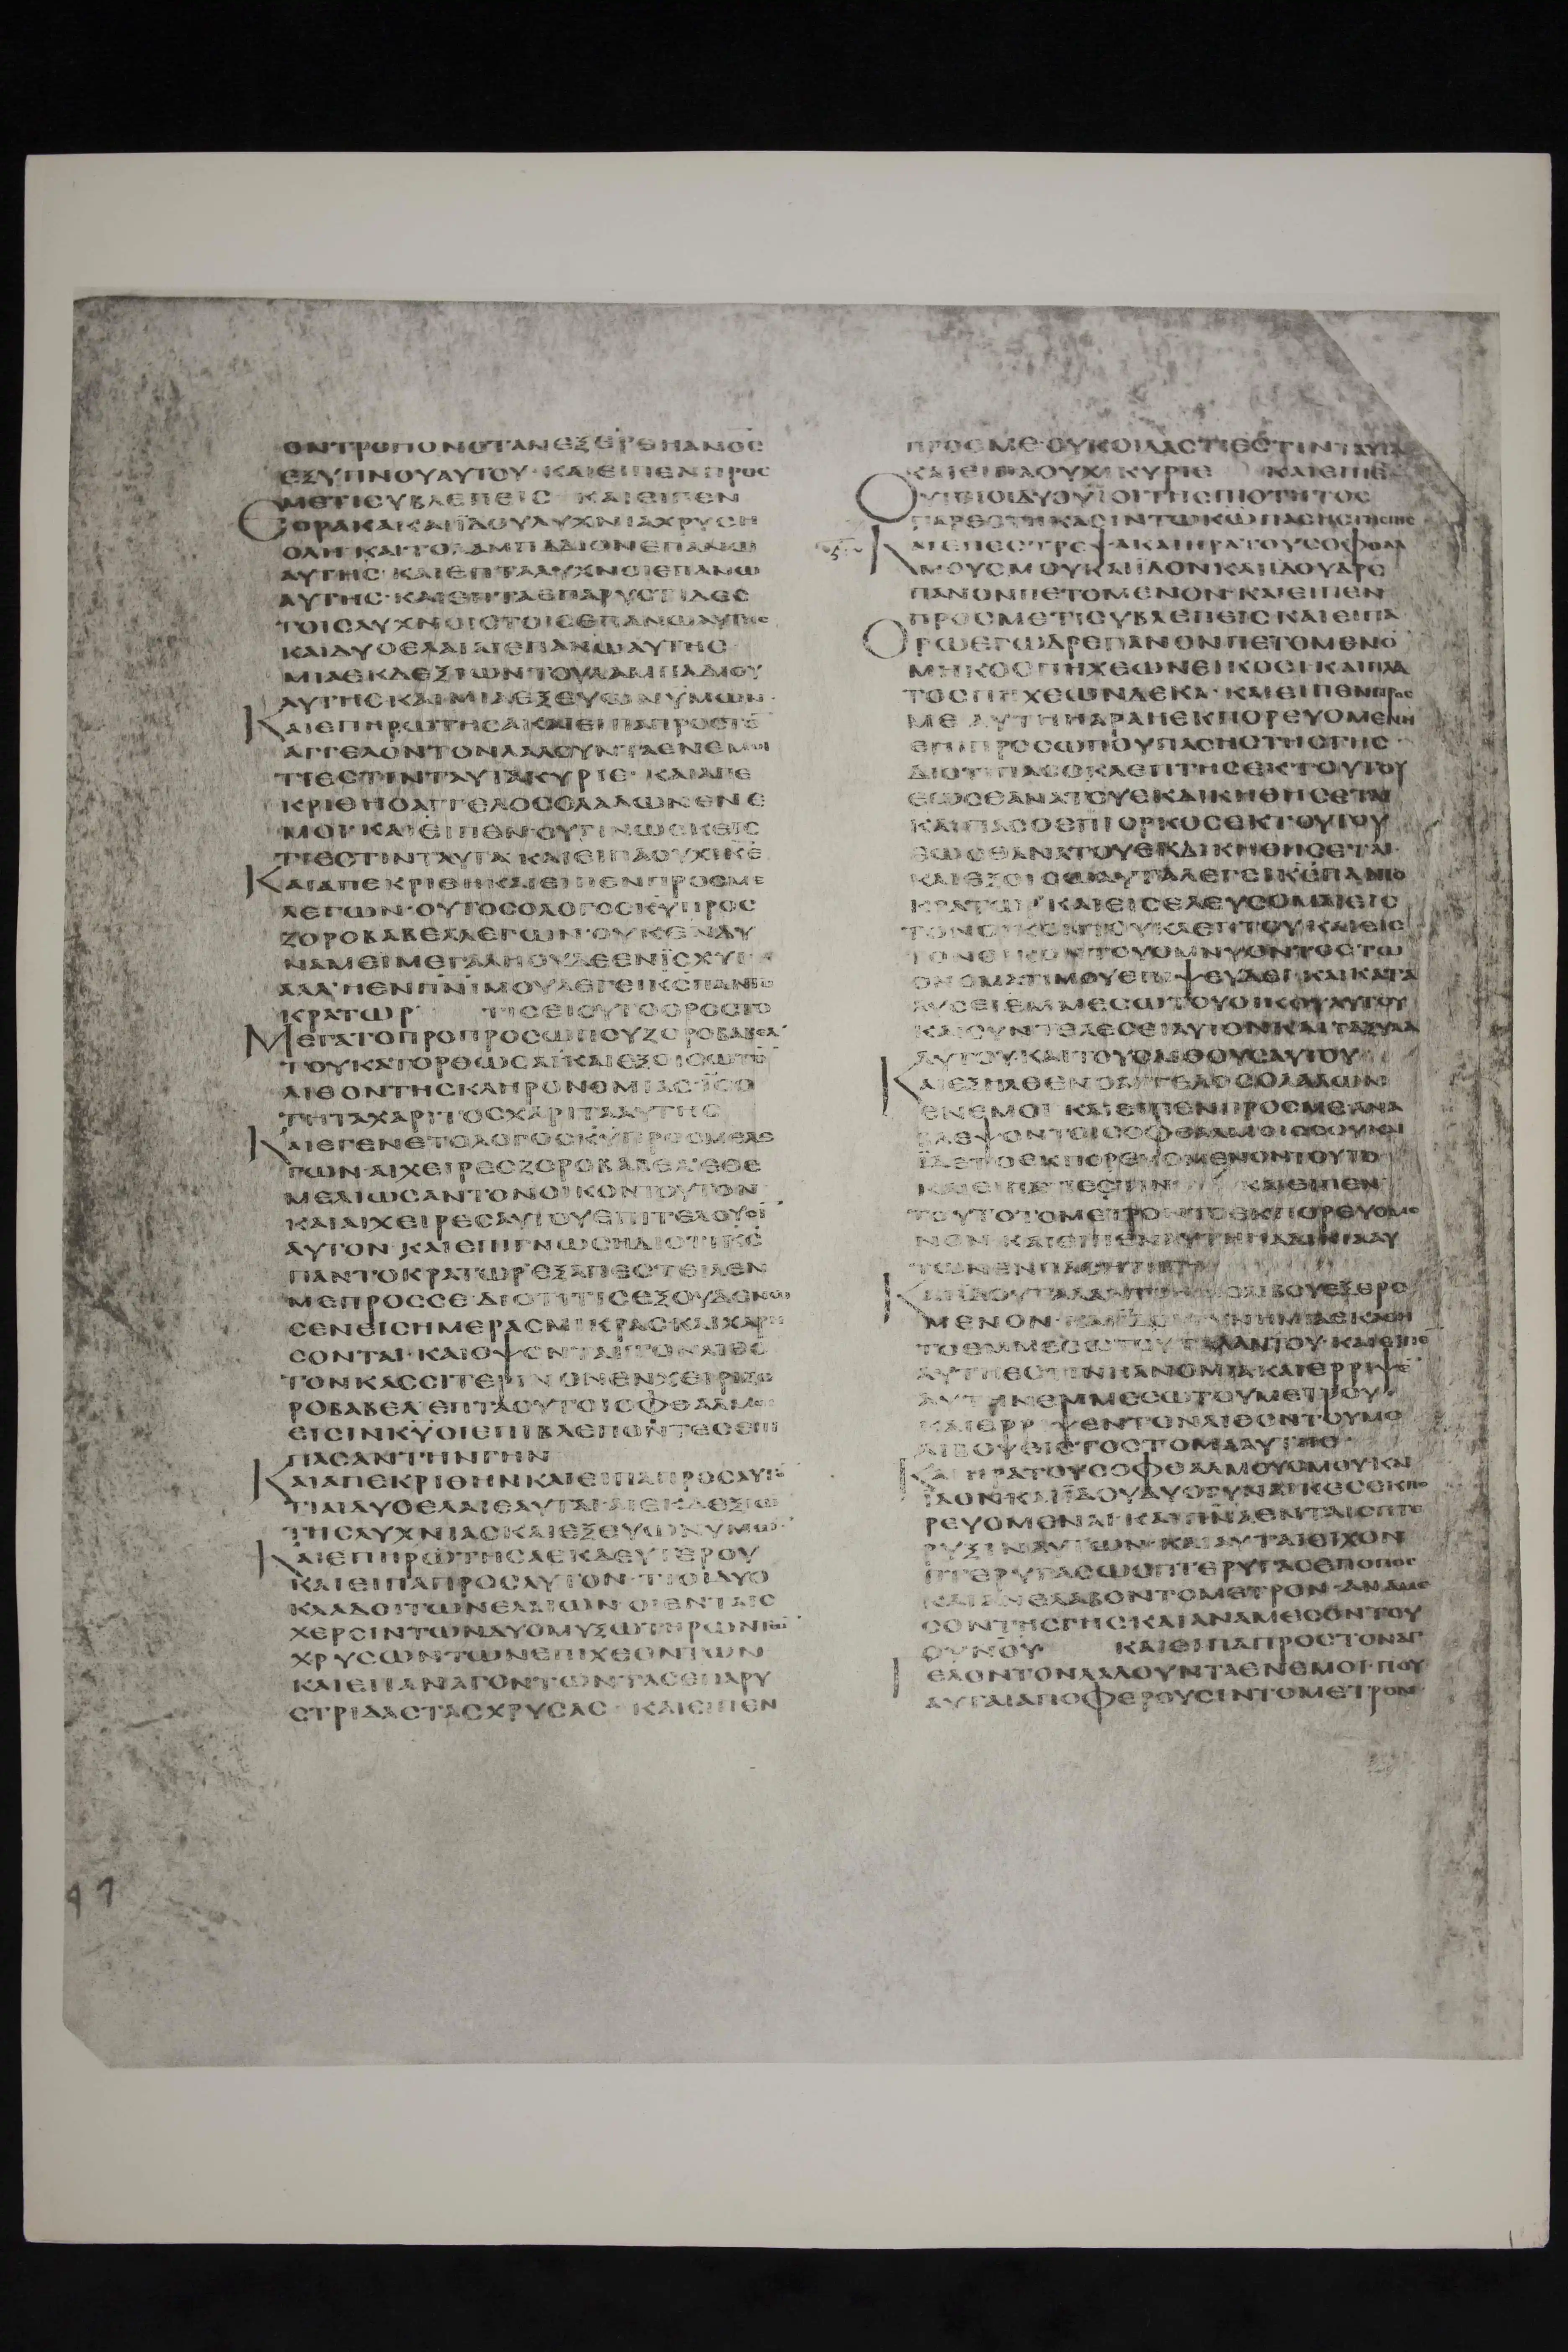 ΟΝΤΡΟΠΟΝΟΤΑΝΕΞΕΡΘΗΑΝΟC
ΕΞΥΠΝΟΥΑΥΤΟΥ·ΚΑΙΕΙΠΕΝΠΡΟC
ΜΕΤΙCΥΒΛΕΠΕΙC ΚΑΙΕΙΠΕΝ
ΕΟΡΑΚΑΚΑΙΪΔΟΥΛΥΧΝΙΑΧΡΥCΗ
ΟΛΗ·ΚΑΙΤΟΛΑΜΠΑΔΙΟΝΕΠΑΝΩ
ΑΥΤΗC·ΚΑΙΕΠΤΑΛΥΧΝΟΙΕΠΑΝΩ
ΑΥΤΗC·ΚΑΙΕΠΤΑΕΠΑΡΥCΤΙΔΕC
ΤΟΙCΛΥΧΝΟΙCΤΟΙCΕΠΑΝΩΑΥΤΗC
ΚΑΙΔΥΟΕΛΑΙΑΙΕΠΑΝΩΑΥΤΗC
ΜΙΑΕΚΔΕΞΙΩΝΤΟΥΛΑΜΠΑΔΙΟΥ
ΑΥΤΗCΚΑΙΜΙΑΕΞΕΥΩΝΥΜΩΝ·
ΚΑΙΕΠΗΡΩΤΗCΑΚΑΙΕΙΠΑΠΡΟCΤΟ̅
ΑΓΓΕΛΟΝΤΟΝΛΑΛΟΥΝΤΑΕΝΕΜΟΙ
ΤΙΕCΤΙΝΤΑΥΤΑΚΥΡΙΕ· ΚΑΙΑΠΕ
ΚΡΙΘΗΟΑΓΓΕΛΟCΟΛΑΛΩΝΕΝΕ
ΜΟΙ·ΚΑΙΕΙΠΕΝ·ΟΥΓΙΝΩCΚΕΙC
ΤΙΕCΤΙΝΤΑΥΤΑ·ΚΑΙΕΙΠΑΟΥΧΙΚΕ̅
ΚΑΙΑΠΕΚΡΙΘΗΚΑΙΕΙΠΕΝΠΡΟCΜΕ
ΛΕΓΩΝ·ΟΥΤΟCΟΛΟΓΟCΚΥ̅ΠΡΟC
ΖΟΡΟΒΑΒΕΛΛΕΓΩΝ·ΟΥΚΕΝΔΥ
ΝΑΜΕΙΜΕΓΑΛΗΟΥΔΕΕΝΪCΧΥΙ
ΑΛΛ'ΗΕΝΠΝ̅Ι̅ΜΟΥΛΕΓΕΙΚC̅ΠΑΝΤΟ
ΚΡΑΤΩΡ ΤΙCΕΙCΥΤΟΟΡΟCΤΟ
ΜΕΓΑΤΟΠΡΟΠΡΟCΩΠΟΥΖΟΡΟΒΑΒΕΛ
ΤΟΥΚΑΤΟΡΘΩCΑΙ·ΚΑΙΕΞΟΙCΩΤΟ̅
ΛΙΘΟΝΤΗCΚΛΗΡΟΝΟΜΙΑC·ΪCΟ
ΤΗΤΑΧΑΡΙΤΟCΧΑΡΙΤΑΑΥΤΗC
ΚΑΙΕΓΕΝΕΤΟΛΟΓΟCΚΥ̅ΠΡΟCΜΕΛΕ
ΓΩΝ·ΑΙΧΕΙΡΕCΖΟΡΟΒΑΒΕΛ'ΕΘΕ
ΜΕΛΙΩCΑΝΤΟΝΟΙΚΟΝΤΟΥΤΟΝ
ΚΑΙΑΙΧΕΙΡΕCΑΥΤΟΥΕΠΙΤΕΛΟΥCΙ
ΑΥΤΟΝ·ΚΑΙΕΠΙΓΝΩCΗΔΙΟΤΙΚC̅
ΠΑΝΤΟΚΡΑΤΩΡ'ΕΞΑΠΕCΤΕΙΛΕΝ
ΜΕΠΡΟCCΕ·ΔΙΟΤΙΤΙCΕΞΟΥΔΕΝΩ
CΕΝΕΙCΗΜΕΡΑCΜΙΚΡΑCΚΑΙΧΑΡΟΥ
CΟΝΤΑΙ·ΚΑΙΟΨΟΝΤΑΙΤΟΝΛΙΘΟ̅
ΤΟΝΚΑCCΙΤΕΡΙΝΟΝΕΝΧΕΙΡΙΖΟ
ΡΟΒΑΒΕΛ'ΕΠΤΑΟΥΤΟΙΟΦΘΑΛΜΟΙ
ΕΙCΙΝΚΥ̅ΟΙΕΠΙΒΛΕΠΟΝΤΕCΕΠΙ
ΠΑCΑΝΤΗΝΓΗΝ
ΚΑΙΑΠΕΚΡΙΘΗΝΚΑΙΕΙΠΑΠΡΟCΑΥΤΟ̅
ΤΙΑΙΔΥΟΕΛΑΙΑΙΑΥΤΑΙ·ΑΙΕΚΔΕΞΙΩ̅
ΤΗCΛΥΧΝΙΑCΚΑΙΕΞΕΥΩΝΥΜΩΝ·
ΚΑΙΕΠΗΡΩΤΗCΑΕΚΔΕΥΤΕΡΟΥ
ΚΑΙΕΙΠΑΠΡΟCΑΥΤΟΝ·ΤΙΟΙΔΥΟ
ΚΛΑΔΟΙΤΩΝΕΛΑΙΩΝ·ΟΙΕΝΤΑΙC
ΧΕΡCΙΝΤΩΝΔΥΟΜΥΞΩΤΗΡΩΝΤΩ̅
ΧΡΥCΩΝΤΩΝΕΠΙΧΕΟΝΤΩΝ
ΚΑΙΕΠΑΝΑΓΟΝΤΩΝΤΑCΕΠΑΡΥ
CΤΡΙΔΑCΤΑCΧΡΥCΑC· ΚΑΙΕΙΠΕΝ
ΠΡΟCΜΕ·ΟΥΚΟΙΔΑCΤΙΕCΤΙΝΤΑΥΤΑ
ΚΑΙΕΙΠΑΟΥΧΙΚΥΡΙΕ ΚΑΙΕΙΠΕ
ΟΥΤΟΙΟΙΔΥΟΥΪΟΙΤΗCΠΙΟΤΗΤΟC
ΠΑΡΕCΤΗΚΑCΙΝΤΩΚΩ̅ΠΑCΗCΤΗCΓΗC
ΚΑΙΕΠΕCΤΡΕΨΑΚΑΙΗΡΑΤΟΥCΟΦΘΑΛ
ΜΟΥCΜΟΥΚΑΙΪΔΟΝΚΑΙΪΔΟΥΔΡΕ
ΠΑΝΟΝΠΕΤΟΜΕΝΟΝ·ΚΑΙΕΙΠΕΝ
ΠΡΟCΜΕΤΙCΥΒΛΕΠΕΙCΚΑΙΕΙΠΑ
ΟΡΩΕΓΩΔΡΕΠΑΝΟΝΠΕΤΟΜΕΝΟ̅
ΜΗΚΟCΠΗΧΕΩΝΕΙΚΟCΙ·ΚΑΙΠΛΑ
ΤΟCΠΗΧΕΩΝΔΕΚΑ·ΚΑΙΕΙΠΕΝΠΡΟC
ΜΕ ΑΥΤΗΗΑΡΑΗΕΚΠΟΡΕΥΟΜΕΝΗ
ΕΠΙΠΡΟCΩΠΟΥΠΑCΗCΤΗCΓΗC·
ΔΙΟΤΙΠΑCΟΚΛΕΠΤΗCΕΚΤΟΥΤΟΥ
ΕΩCΘΑΝΑΤΟΥΕΚΔΙΚΗΘΗCΕΤΑΙ
ΚΑΙΠΑCΟΕΠΙΟΡΚΟCΕΚΤΟΥΤΟΥ
ΕΩCΘΑΝΑΤΟΥΕΚΔΙΚΗΘΗCΕΤΑΙ·
ΚΑΙΕΞΟΙCΩΑΥΤΑΛΕΓΕΙΚC̅ΠΑΝΤΟ
ΚΡΑΤΩΡ'ΚΑΙΕΙCΕΛΕΥCΟΜΑΙΕΙC
ΤΟΝΟΙΚΟΝΤΟΥΚΛΕΠΤΟΥ·ΚΑΙΕΙC
ΤΟΝΟΙΚΟΝΤΟΥΟΜΝΥΟΝΤΟCΤΩ
ΟΝΟΜΑΤΙΜΟΥΕΠΙΨΕΥΔΕΙ·ΚΑΙΚΑΤΑ
ΛΥCΕΙΕΜΜΕCΩΤΟΥΟΙΚΟΥΑΥΤΟΥ
ΚΑΙCΥΝΤΕΛΕCΕΙΑΥΤΟΝΚΑΙΤΑΞΥΛΑ
ΑΥΤΟΥΚΑΙΤΟΥCΛΙΘΟΥCΑΥΤΟΥ
ΚΑΙΕΞΗΛΘΕΝΟΑΓΓΕΛΟCΟΛΑΛΩΝ
ΕΝΕΜΟΙ ΚΑΙΕΙΠΕΝΠΡΟCΜΕΑΝΑ
ΒΛΕΨΟΝΤΟΙCΟΦΘΑΛΜΟΙCCΟΥΚΑΙ
ΪΔΕΤΟΕΚΠΟΡΕΥΟΜΕΝΟΝΤΟΥΤΟ
ΚΑΙΕΙΠΑΤΙΕCΤΙΝ ΚΑΙΕΙΠΕΝ
ΤΟΥΤΟΤΟΜΕΤΡΟΝΤΟΕΚΠΟΡΕΥΟΜΕ
ΝΟΝ·ΚΑΙΕΙΠΕΝΑΥΤΗΗΑΔΙΚΙΑΑΥ
ΤΩΝΕΝΠΑCΗΤΗΓΗ
ΚΑΙΪΔΟΥΤΑΛΑΝΤΟΝΜΟΛΙΒΟΥΕΞΑΙΡΟ
ΜΕΝΟΝ·ΚΑΙΪΔΟΥΓΥΝΗΜΙΑΕΚΑΘΗ
ΤΟΕΜΜΕCΩΤΟΥΤΑΛΑΝΤΟΥ·ΚΑΙΕΙΠΕ
ΑΥΤΗΕCΤΙΝΗΑΝΟΜΙΑ·ΚΑΙΕΡΡΙΨΕ̅
ΑΥΤΗΝΕΜΜΕCΩΤΟΥΜΕΤΡΟΥ
ΚΑΙΕΡΡΙΨΕΝΤΟΝΛΙΘΟΝΤΟΥΜΟ
ΛΙΒΟΥΕΙCΤΟCΤΟΜΑΑΥΤΗC·
ΚΑΙΗΡΑΤΟΥCΟΦΘΑΛΜΟΥCΜΟΥΚΑΙ
ΪΔΟΝ·ΚΑΙΪΔΟΥΔΥΟΓΥΝΑΙΚΕCΕΚΠΟ
ΡΕΥΟΜΕΝΑΙ·ΚΑΙΠΝΑ̅ΕΝΤΑΙCΠΤΕ
ΡΥΞΙΝΑΥΤΩΝ·ΚΑΙΑΥΤΑΙΕΙΧΟΝ
ΠΤΕΡΥΓΑCΩCΠΤΕΡΥΓΑCΕΠΟΠΟC
ΚΑΙΑΝΕΛΑΒΟΝΤΟΜΕΤΡΟΝ·ΑΝΑΜΕ
CΟΝΤΗCΓΗCΚΑΙΑΝΑΜΕCΟΝΤΟΥ
ΟΥΝΟΥ̅· ΚΑΙΕΙΠΑΠΡΟCΤΟΝΑΓ
ΓΕΛΟΝΤΟΝΛΑΛΟΥΝΤΑΕΝΕΜΟΙ·ΠΟΥ
ΑΥΤΑΙΑΠΟΦΕΡΟΥCΙΝΤΟΜΕΤΡΟΝ·